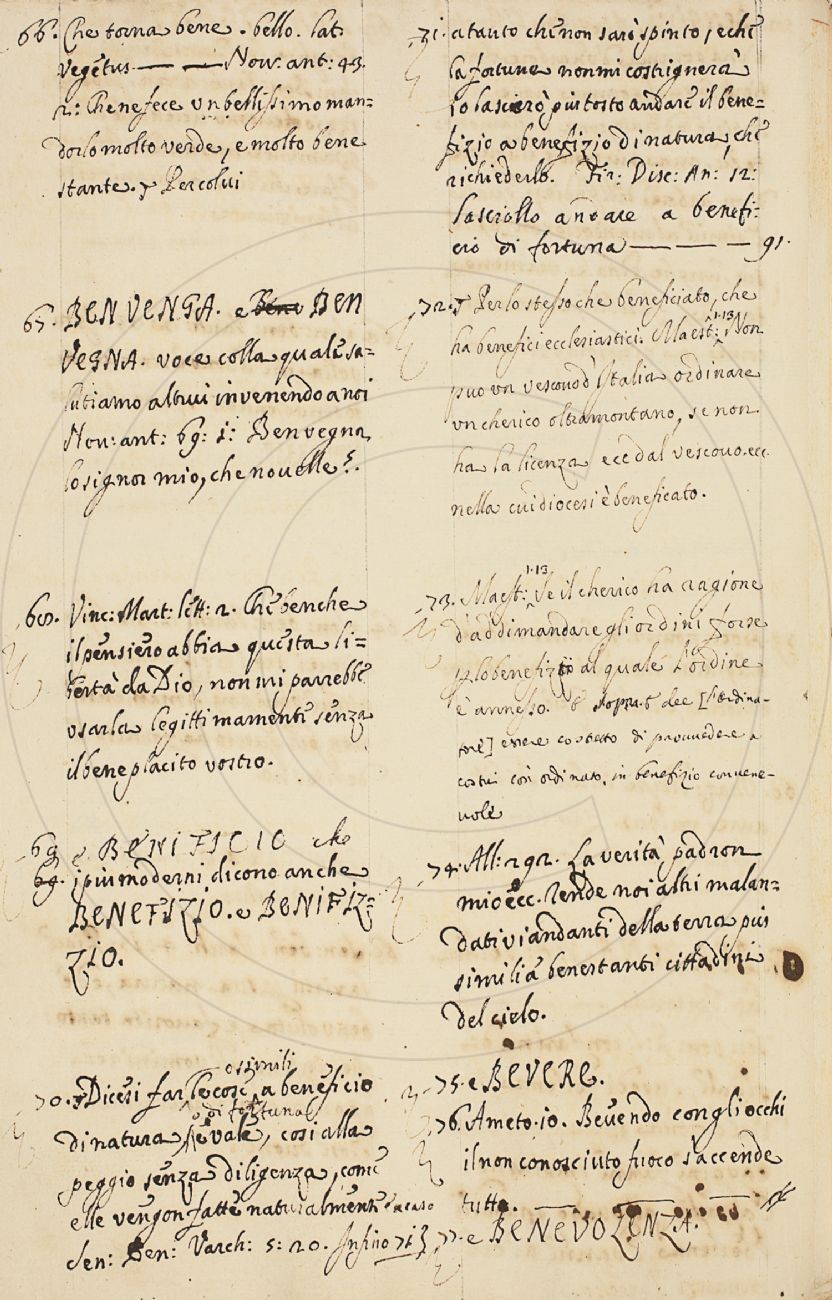 66. Che torna bene. bello. lat.
vegetus — — Nov: ant: 43.
2: Che ne fece un bellissimo man=
dorlo molto verde, e molto bene
stante. Per colui
67. BENVENGA. e BEN
VEGNA. voce colla quale sa=
lutiamo altrui in venendo a noi
Nov: ant: 69: 1: Benvegna
lo signor mio, che novelle?
68. Vinc: Mart: lett: 2. Che benche
il pensiero abbia questa li=
bertà da Dio, non mi parrebbe
usarla legittimamente senza
il beneplacito vostro.
69. e BENIFICIO che
69. i più moderni dicono anche
BENEFIZIO. e BENIFIZ=
ZIO.
o simili
70. Dicesi far le cose a beneficio
o di fortuna
di natura, e vale, cosi alla
peggio senza diligenza, come
elle vengon fatte naturalmente e a caso
Sen: Ben: Varch: 5: 20. Infino 71
71. a tanto che non sarò spinto, e che
la fortuna non mi costrignerà
io lascierò piu tosto andare il bene=
fizio a benefizio di natura, che
richiederlo. Fir: Disc: An: 12:
lasciollo andare a benefi=
cio di fortuna — — — 91.
72. Per lo stesso che beneficiato, che
ha benefici ecclesiastici. Maest: 1.13. Non
puo un vescovo d'Italia ordinare
un cherico oltramontano, se non
ha la licenza ecc dal vescovo. ecc.
nella cui diocesi è beneficato.
73. Maest: 1.13. Se il cherico ha ragione
d'addimandare gli ordini forse
p lo benefizio al quale l'ordine
è annesso. E sopra. dee [l'ordina-
tore] essere costretto di provvedere a
costui così ordinato, in benefizio convene-
vole
74. All: 292. La verità padron
mio ecc. rende noi altri malan=
dati viandanti della terra più
simili a benestanti cittadini
del cielo.
75. e BEVERE.
76. Ameto. 10. Bevendo con gli occhi
il non conosciuto fuoco s'accende
tutto.
77. e BENEVOLENZA.